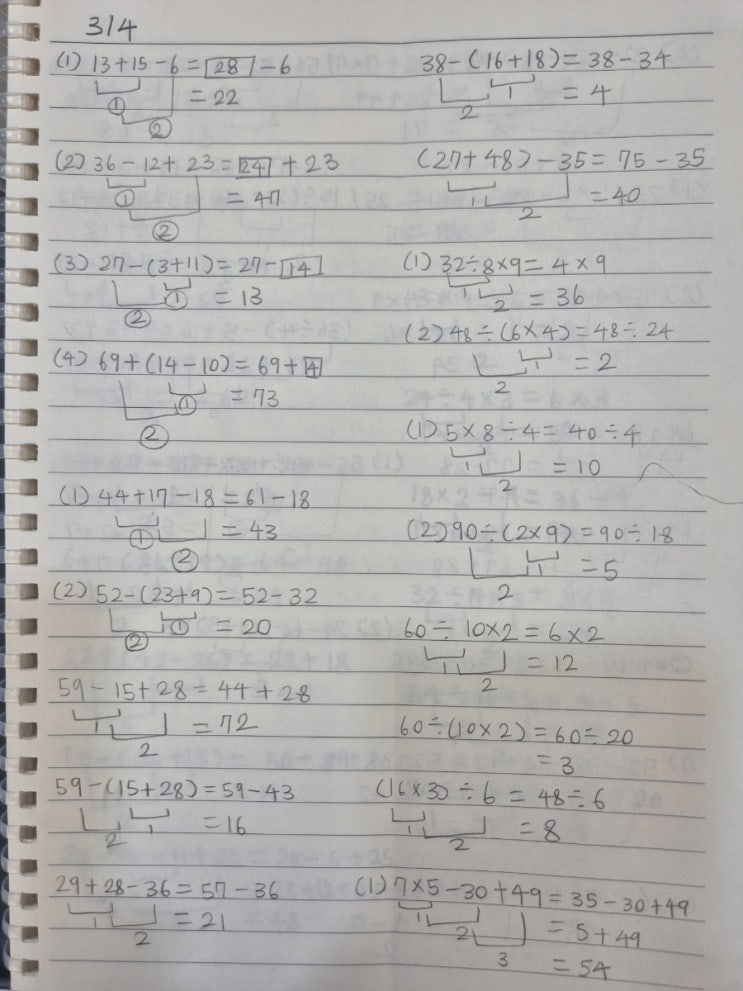 3/4
(1) 13+15-6=28-6
①
=22
②
(2) 36-12+23=24+23
①
=47
②
(3) 27-(3+11)=27-14
①
=13
②
(4) 69+(14-10)=69+4
①
=73
②
(1) 44+17-18=61-18
①
=43
②
(2) 52-(23+9)=52-32
② ①
=20
59-15+28=44+28
1
=72
2
59-(15+28)=59-43
2 1
=16
29+28-36=57-36
1
=21
2
38-(16+18)=38-34
1
=4
2
(27+48)-35=75-35
1
=40
2
(1) 32÷8×9=4×9
1 2
=36
(2) 48÷(6×4)=48÷24
1
=2
2
(1) 5×8÷4=40÷4
1
=10
2
(2) 90÷(2×9)=90÷18
1
=5
2
60÷10×2=6×2
1
=12
2
60÷(10×2)=60÷20
=3
(16×3)÷6=48÷6
1
=8
2
(1) 7×5-30+49=35-30+49
1
2
=5+49
3
=54